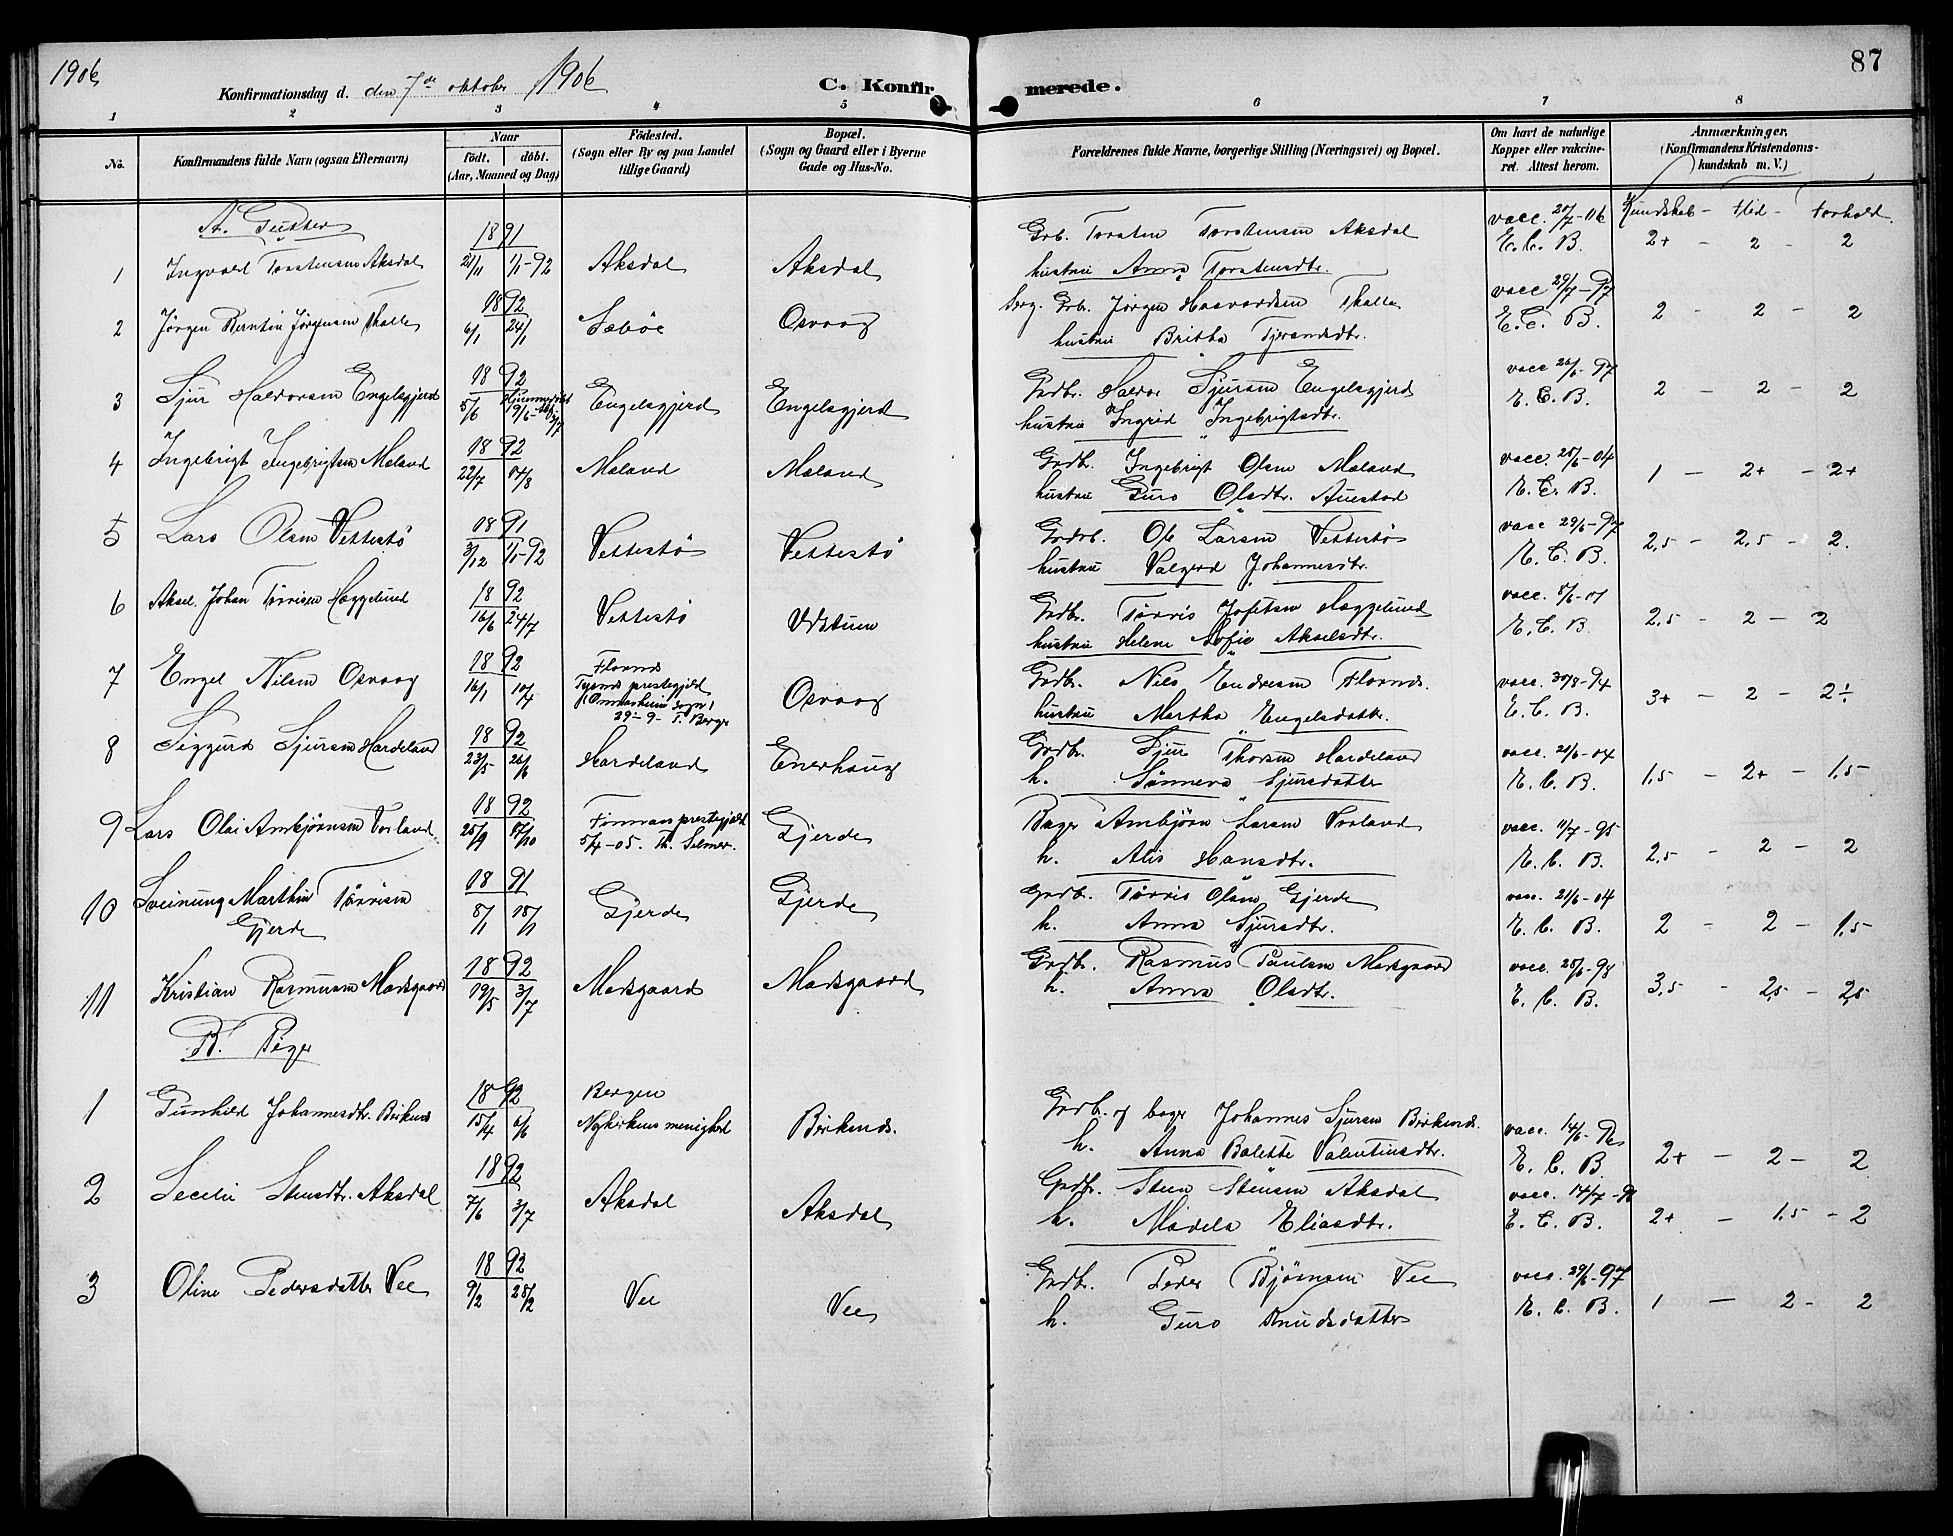 1906
87
Konfirmationsdag d. den 7de oktober 1906
C. Konfir
merede.
1 2 3 4 5 6 7 8
No.
Konfirmandens fulde Navn (ogsaa Efternavn)
Naar
født. døbt.
(Aar, Maaned og Dag)
Fødested.
(Sogn eller By og paa Landet
tillige Gaard)
Bopæl.
(Sogn og Gaard eller i Byerne
Gade og Hus-No.
Forældrenes fulde Navne, borgerlige Stilling (Næringsvei) og Bopæl.
Om havt de naturlige
Kopper eller vakcine-
ret. Attest herom.
Anmærkninger.
(Konfirmandens Kristendoms-
kundskab m. V.)
Kundskab - flid - forhold.
A. Gutter
1 Ingvald Torstensen Aksdal 1891 21/11 1/1-92 Aksdal Aksdal
Grb. Torsten Torstensen Aksdal vacc. 20/7-06
hustru Anna Torstensdtr. E. C. B. 2+ - 2 - 2
2 Jørgen Berntin Jørgensen Skalle 1892 6/1 24/1 Sæbøe Osvaag
Grb. Jørgen Haavardsen Skalle vacc 29/7-97
hustru Britha Tjerandsdtr. E. C. B. 2 - 2 - 2
3 Sjur Halvorsen Engelsgjerd 1892 5/6 Hjemmedøbt 19/6 Engelsgjerd Engelsgjerd
Grdbr. Halvor Sjursen Engelsgjerd vacc 26/6-97
hustru Ingrid Ingebrigtsdtr. E. C. B. 2 - 2 - 2
4 Ingebrigt Ingebrigtsen Mæland 1892 22/7 Mæland Mæland
Grdb. Ingebrigt Olsen Mæland vacc. 25/6-04
hustru Guro Olsdtr. Auestad E. C. B. 1 - 2+ - 2+
5 Lars Olsen Vettestø 1891 3/12 1/1-92 Vettestø Vettestø
Grdb. Ole Larsen Vettestø vacc 29/6-97
hustru Valgerd Johannesdtr. E. C. B. 2,5 - 2,5 - 2.
6 Aksel Johan Tørrisen Hæggelund 1892 16/6 24/7 Vettestø Udstuen
Grdb. Tørris Josefsen Hæggelund vacc. 8/6-01
hustru Helene Sofie Akselsdtr. E. C. B. 2,5 - 2 - 2
7 Engel Nilsen Osvaag 1892 16/1 10/4 prestegjeld 29-9- T. Berge Osvaag
Grdb. Nils Endresen vacc. 30/8-94
hustru Martha Engelsdatter E. C. B. 3+ - 2 - 2÷
8 Siggurd Sjursen Hardeland 1892 23/5 26/6 Hardeland Enerhaug
Grdb. Sjur Thorsen Hardeland vacc 21/6-04
h. Sønneva Sjursdatter E. C. B. 1,5 - 2+ - 1,5
9 Lars Olai Ambjørnsen Vorland 1892 25/9 Finnaas prestegjeld 5/4-05. Th. Selmer. Gjerde
Bager Ambjørn Larsen Vorland vacc. 11/7-95
h. Alis Hansdtr. E. C. B. 2,5 - 2 - 2
10 Sveinung Marthin Tørrisen 1891 8/1 18/1 Gjerde Gjerde
Gjerde
Grdb. Tørris Olsen Gjerde vacc. 21/6-04
h. Anna Sjursdtr. E. C. B. 2 - 2 - 1,5
11 Kristian Rasmussen Marsgaard 1892 19/5 3/7 Marsgaard Marsgaard
Grdb. Rasmus Paulsen Marsgaard vacc. 28/6-98
h. Anna Olsdtr. E. C. B. 3,5 - 2,5 - 2,5
B. Piger
1 Gunhild Johannesdtr. Birkenes 1892 15/4 6/6 Bergen Nykirkens menighed Birkenes.
Grdb. og bager Johannes Sjursen Birkenes. vacc. 14/6
h. Anna Bolette Valentinsdtr. E. C. B. 2+ - 2 - 2
2 Secelie Stensdtr. Aksdal 1892 7/6 3/7 Aksdal Aksdal
Grdb. Steen Stensen Aksdal vacc. 14/7-98
h. Madela Eliasdtr. E. C. B. 2+ - 1,5 - 2
3 Oline Pedersdatter Vee 1892 9/2 28/2 Vee Vee
Grdb. Peder Bjørnsen Vee vacc. 29/6-97
h. Guro Knudsdatter E. C. B. 1 - 2 - 2